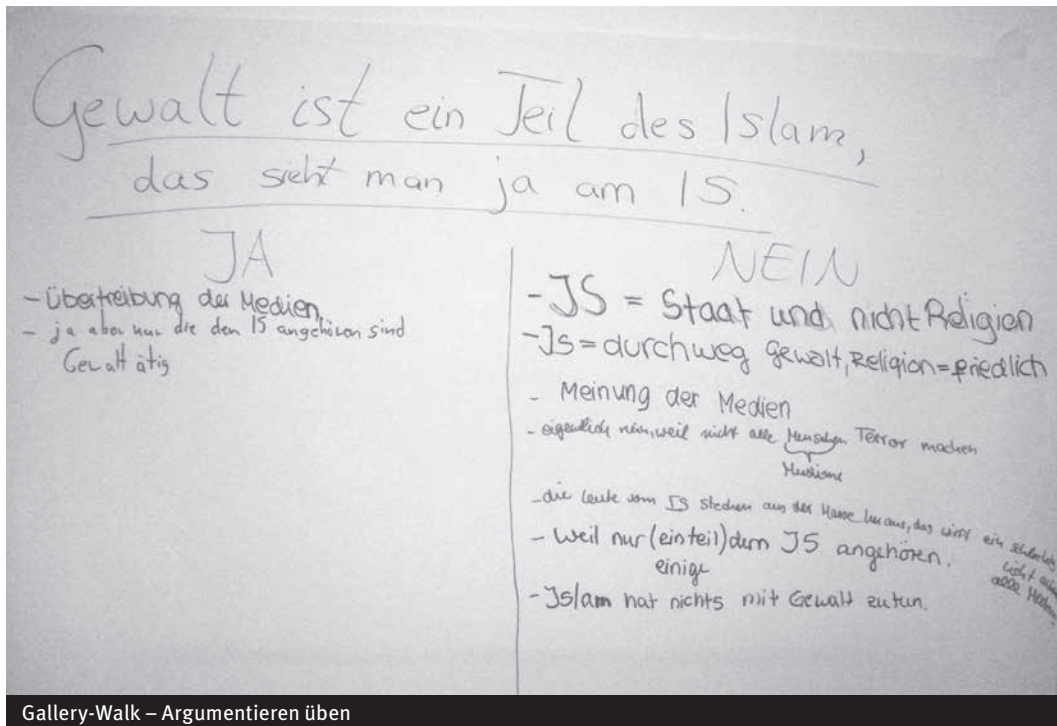 Gewalt ist ein Teil des Islam,
das sieht man ja am IS.
JA
- Übertreibung der Medien
- ja aber nur die den IS angehören sind
Gewalt ätig
NEIN
- JS = Staat und nicht Religion
- Js = durchweg gewalt, Religion = friedlich
- Meinung der Medien
- eigentlich nein, weil nicht alle Menschen Terror machen
Muslime
- die Leute vom IS stechen aus der Masse heraus, das wirft ein schlechtes
Licht auf
alle
- Weil nur (ein teil) dem JS angehören.
einige
- Jslam hat nichts mit Gewalt zutun.
Gallery-Walk – Argumentieren üben